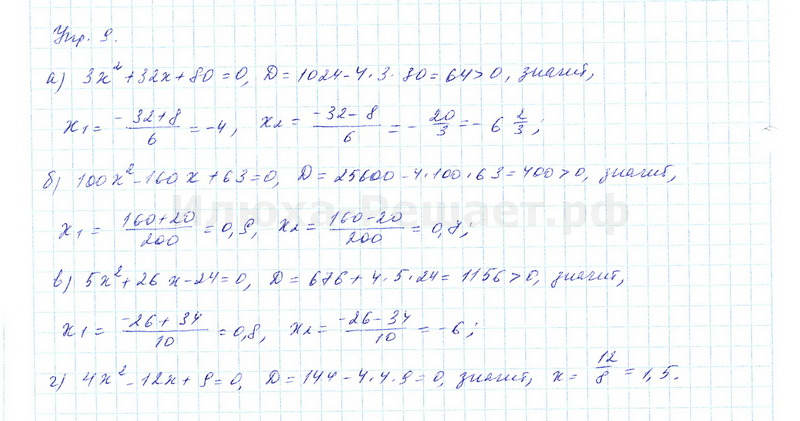 Упр. 9.
а) 3x² + 32x + 80 = 0, D = 1024 - 4·3·80 = 64 > 0, значит,
x₁ = (-32+8)/6 = -4, x₂ = (-32-8)/6 = -20/3 = -6 2/3;
б) 100x² - 160x + 63 = 0, D = 25600 - 4·100·63 = 400 > 0, значит,
Илюха-Решает.рф
x₁ = (160+20)/200 = 0,9, x₂ = (160-20)/200 = 0,8;
в) 5x² + 26x - 24 = 0, D = 676 + 4·5·24 = 1156 > 0, значит,
x₁ = (-26+34)/10 = 0,8, x₂ = (-26-34)/10 = -6;
г) 4x² - 12x + 9 = 0, D = 144 - 4·4·9 = 0, значит, x = 12/8 = 1,5.